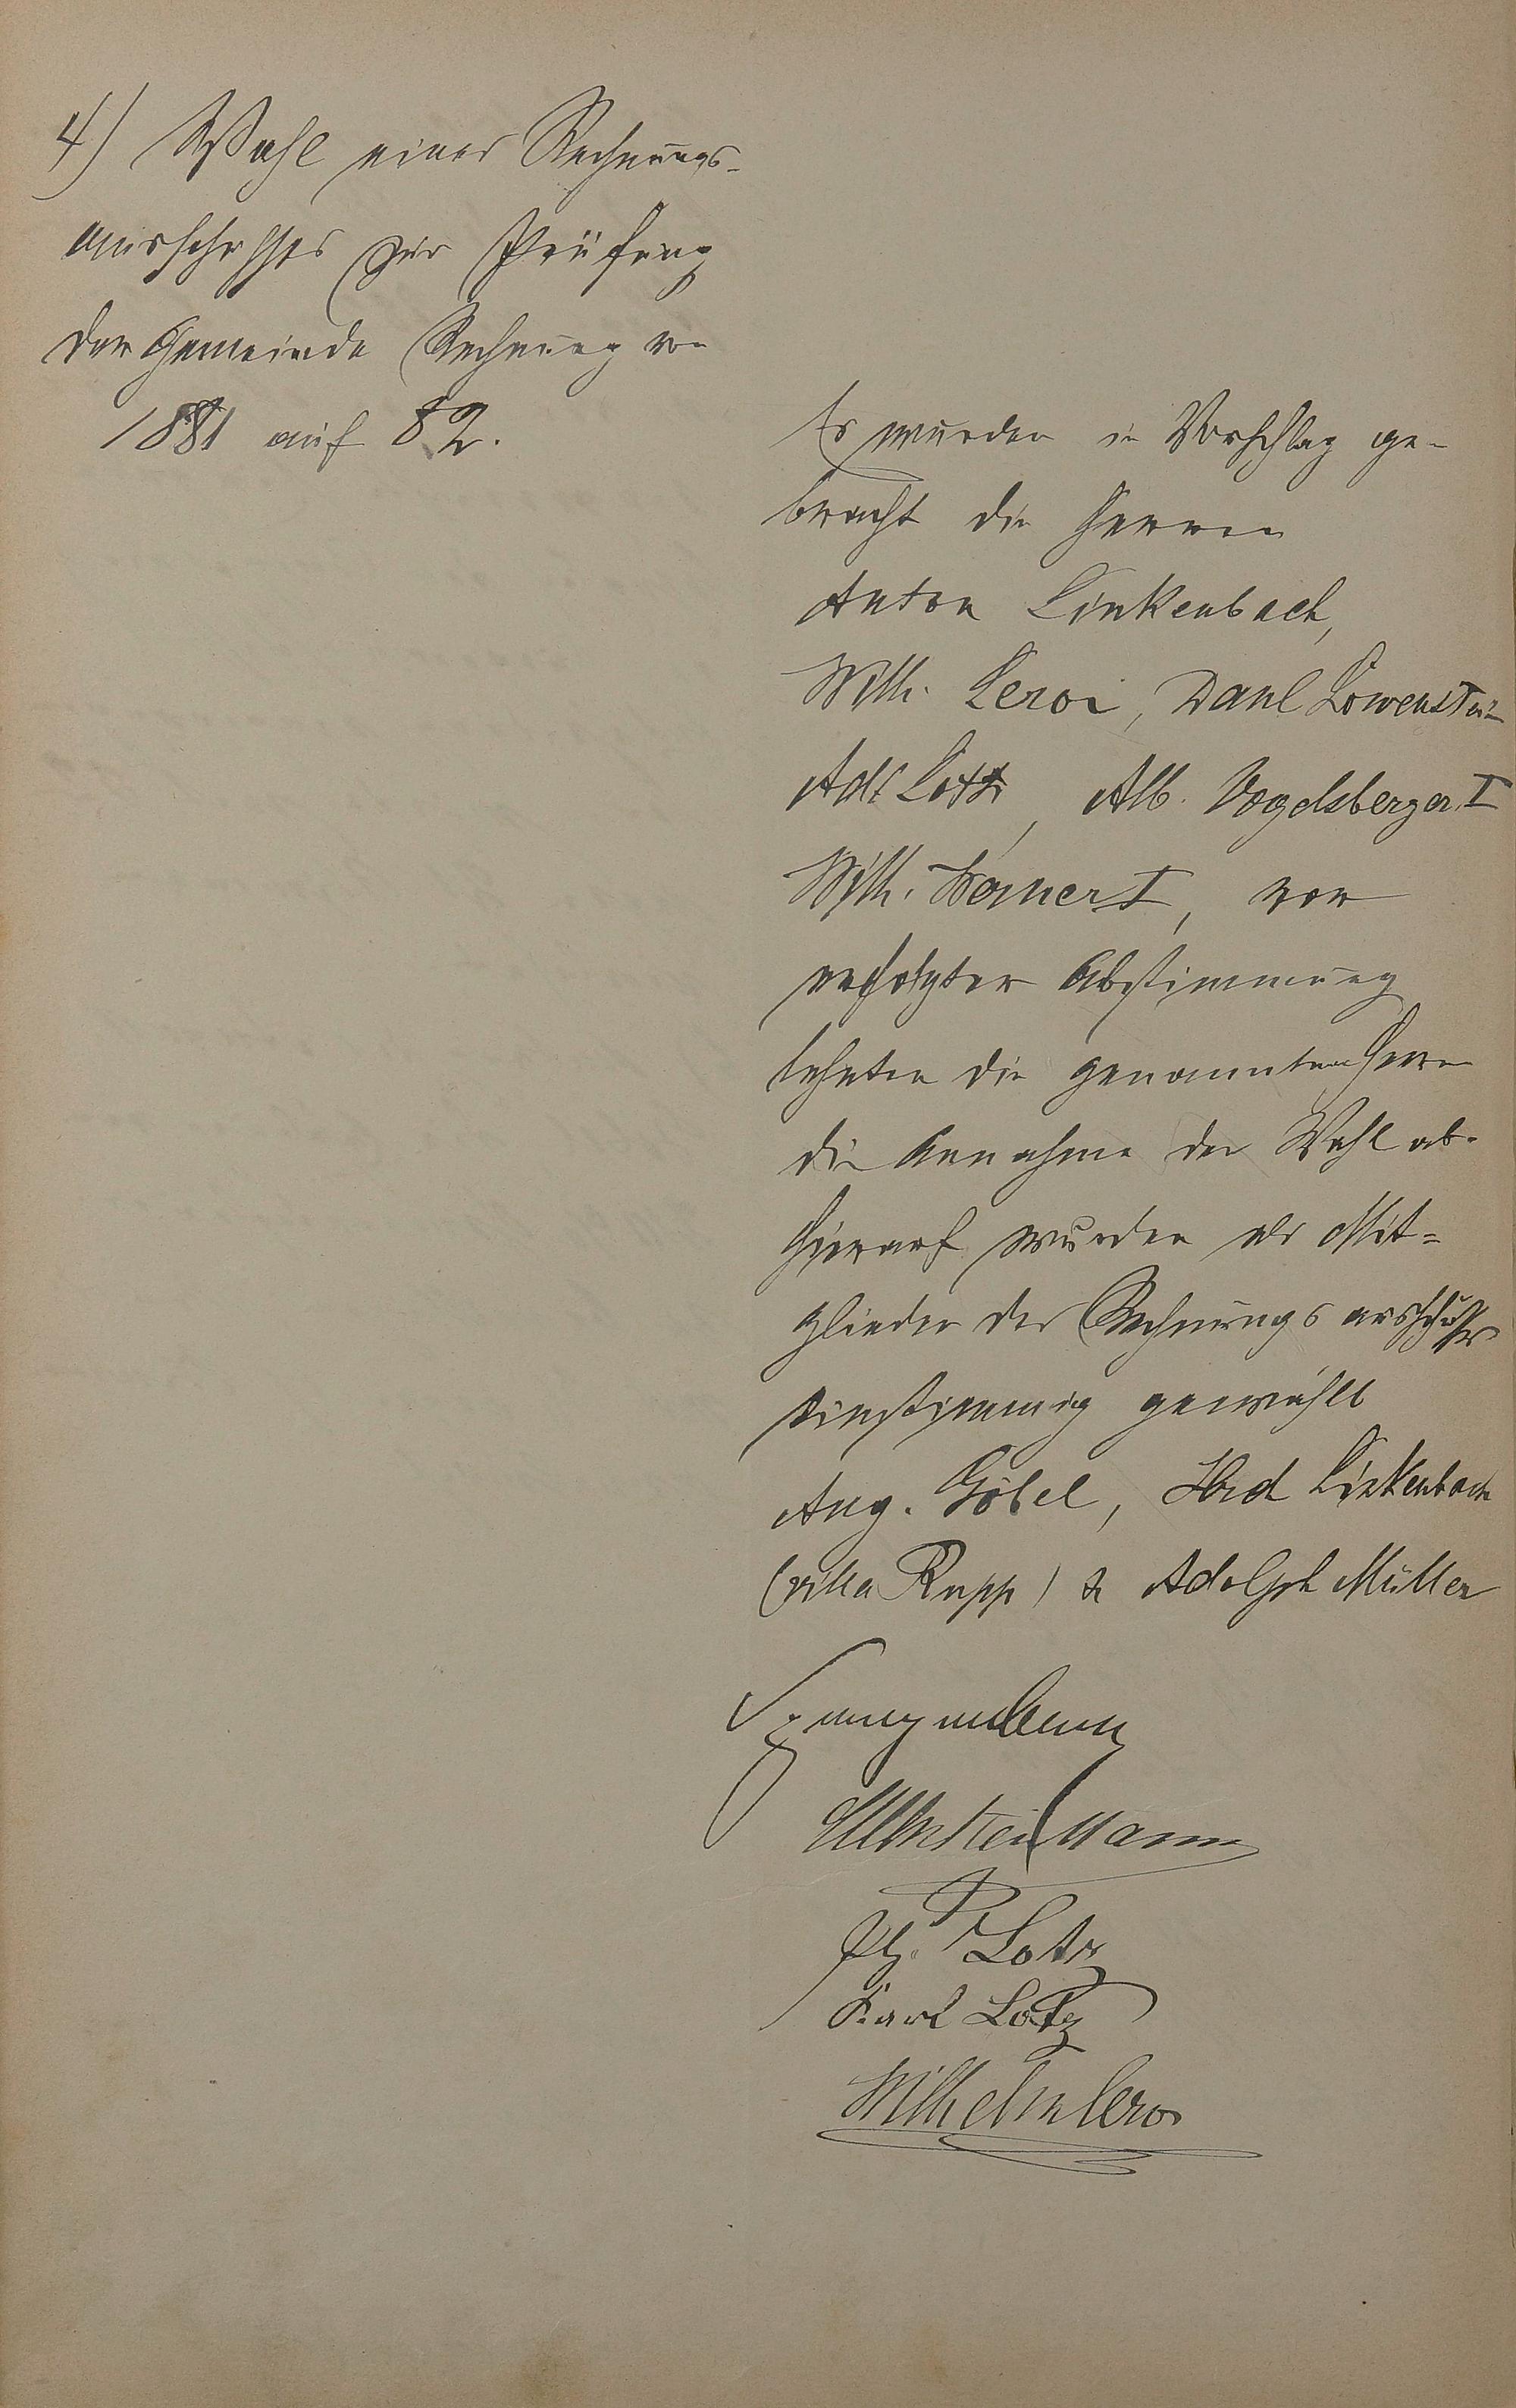 4) Wahl eines Rechnungs-
ausschusses zur Prüfung
der Gemeinde Rechnung von
1881 auf 82.
Es wurden in Vorschlag ge-
bracht die Herren
Anton Linkenbach,
Wilh. Leroi, Danl Löwenstein
Adf Lotz, Alb. Vogelsberger I
Wilh. Werner I, vor
erfolgter Abstimmung
lehnten die genannten Herren
die Annahme der Wahl ab.
Hierauf wurden als Mit=
glieder des Rechnungsausschusses
einstimmig gewählt
Aug. Göbel, Linkenbach
(villa Rupp) & Adolph Müller
Ph. Lotz
Karl Lotz
Wilhelm Leroi